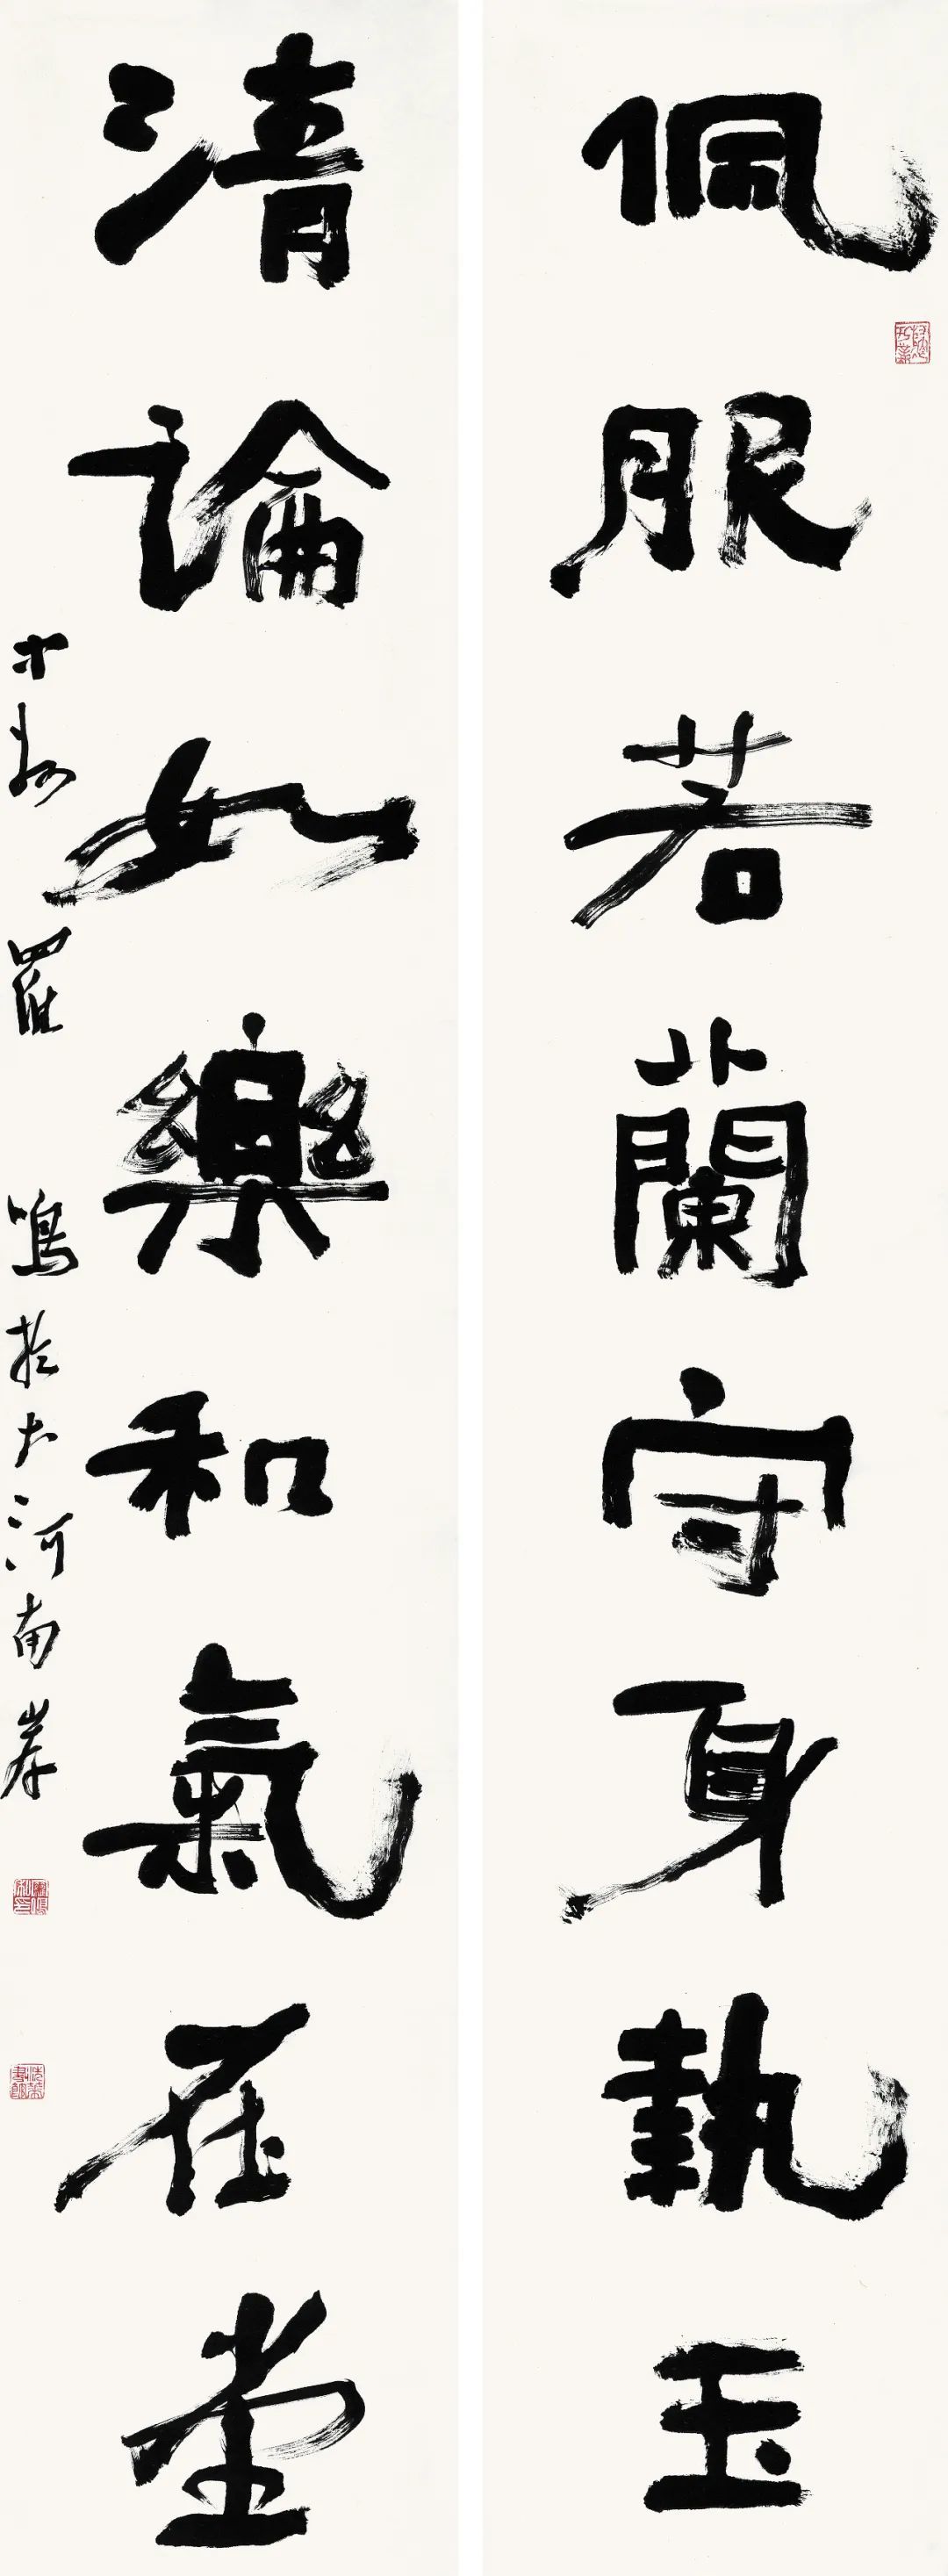 佩服若蘭守身執玉
清論如樂和氣在堂
羅鳴於大河南岸